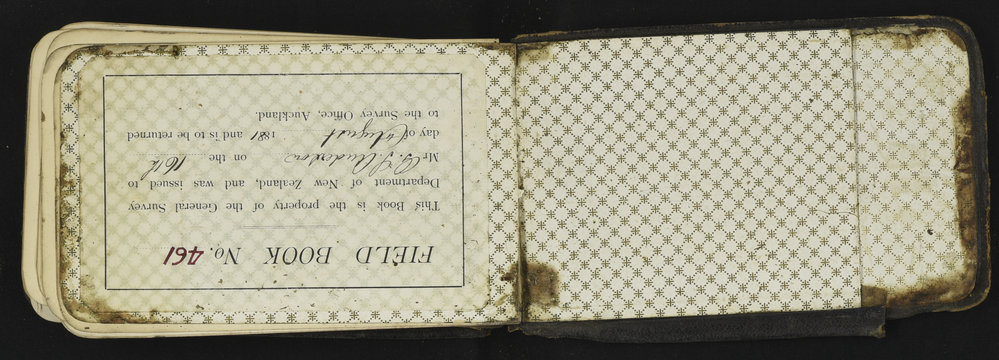 FIELD BOOK No. 461
This Book is the property of the General Survey
Department of New Zealand, and was issued to
Mr G. F. Anderson on the 16th
day of August 1881 and is to be returned
to the Survey Office, Auckland.